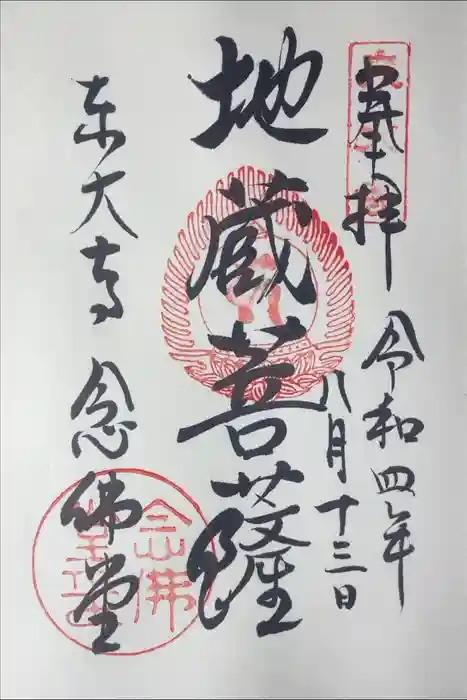 奉拝
令和四年
八月十三日
地蔵菩薩
東大寺 念佛堂